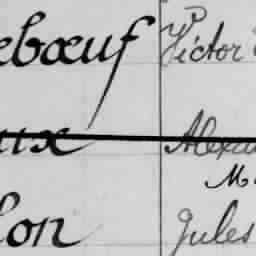 ebœuf Victor
ux Alexan
M
lon Jules